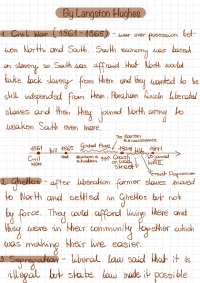 By Langston Hughes
1. Civil War (1861-1865) - was over possession bet-
ween North and South. South economy was based
on slavery so South was afraid that North would
take back slavery from them and they wanted to be
still independent from them. Abraham Lincoln liberated
slaves and then they joined North army to
weaken South even more.
1861
Civil
War
1865
1929
Crash on
Wall
street
WW2
Great Depression
2. Ghettos - after liberation former slaves moved
to North and settled in Ghettos but not
by force. They could afford living there and
they were in their community together which
was making their live easier.
3. Segregation - liberal law said that it is
illegal but state law made it possible